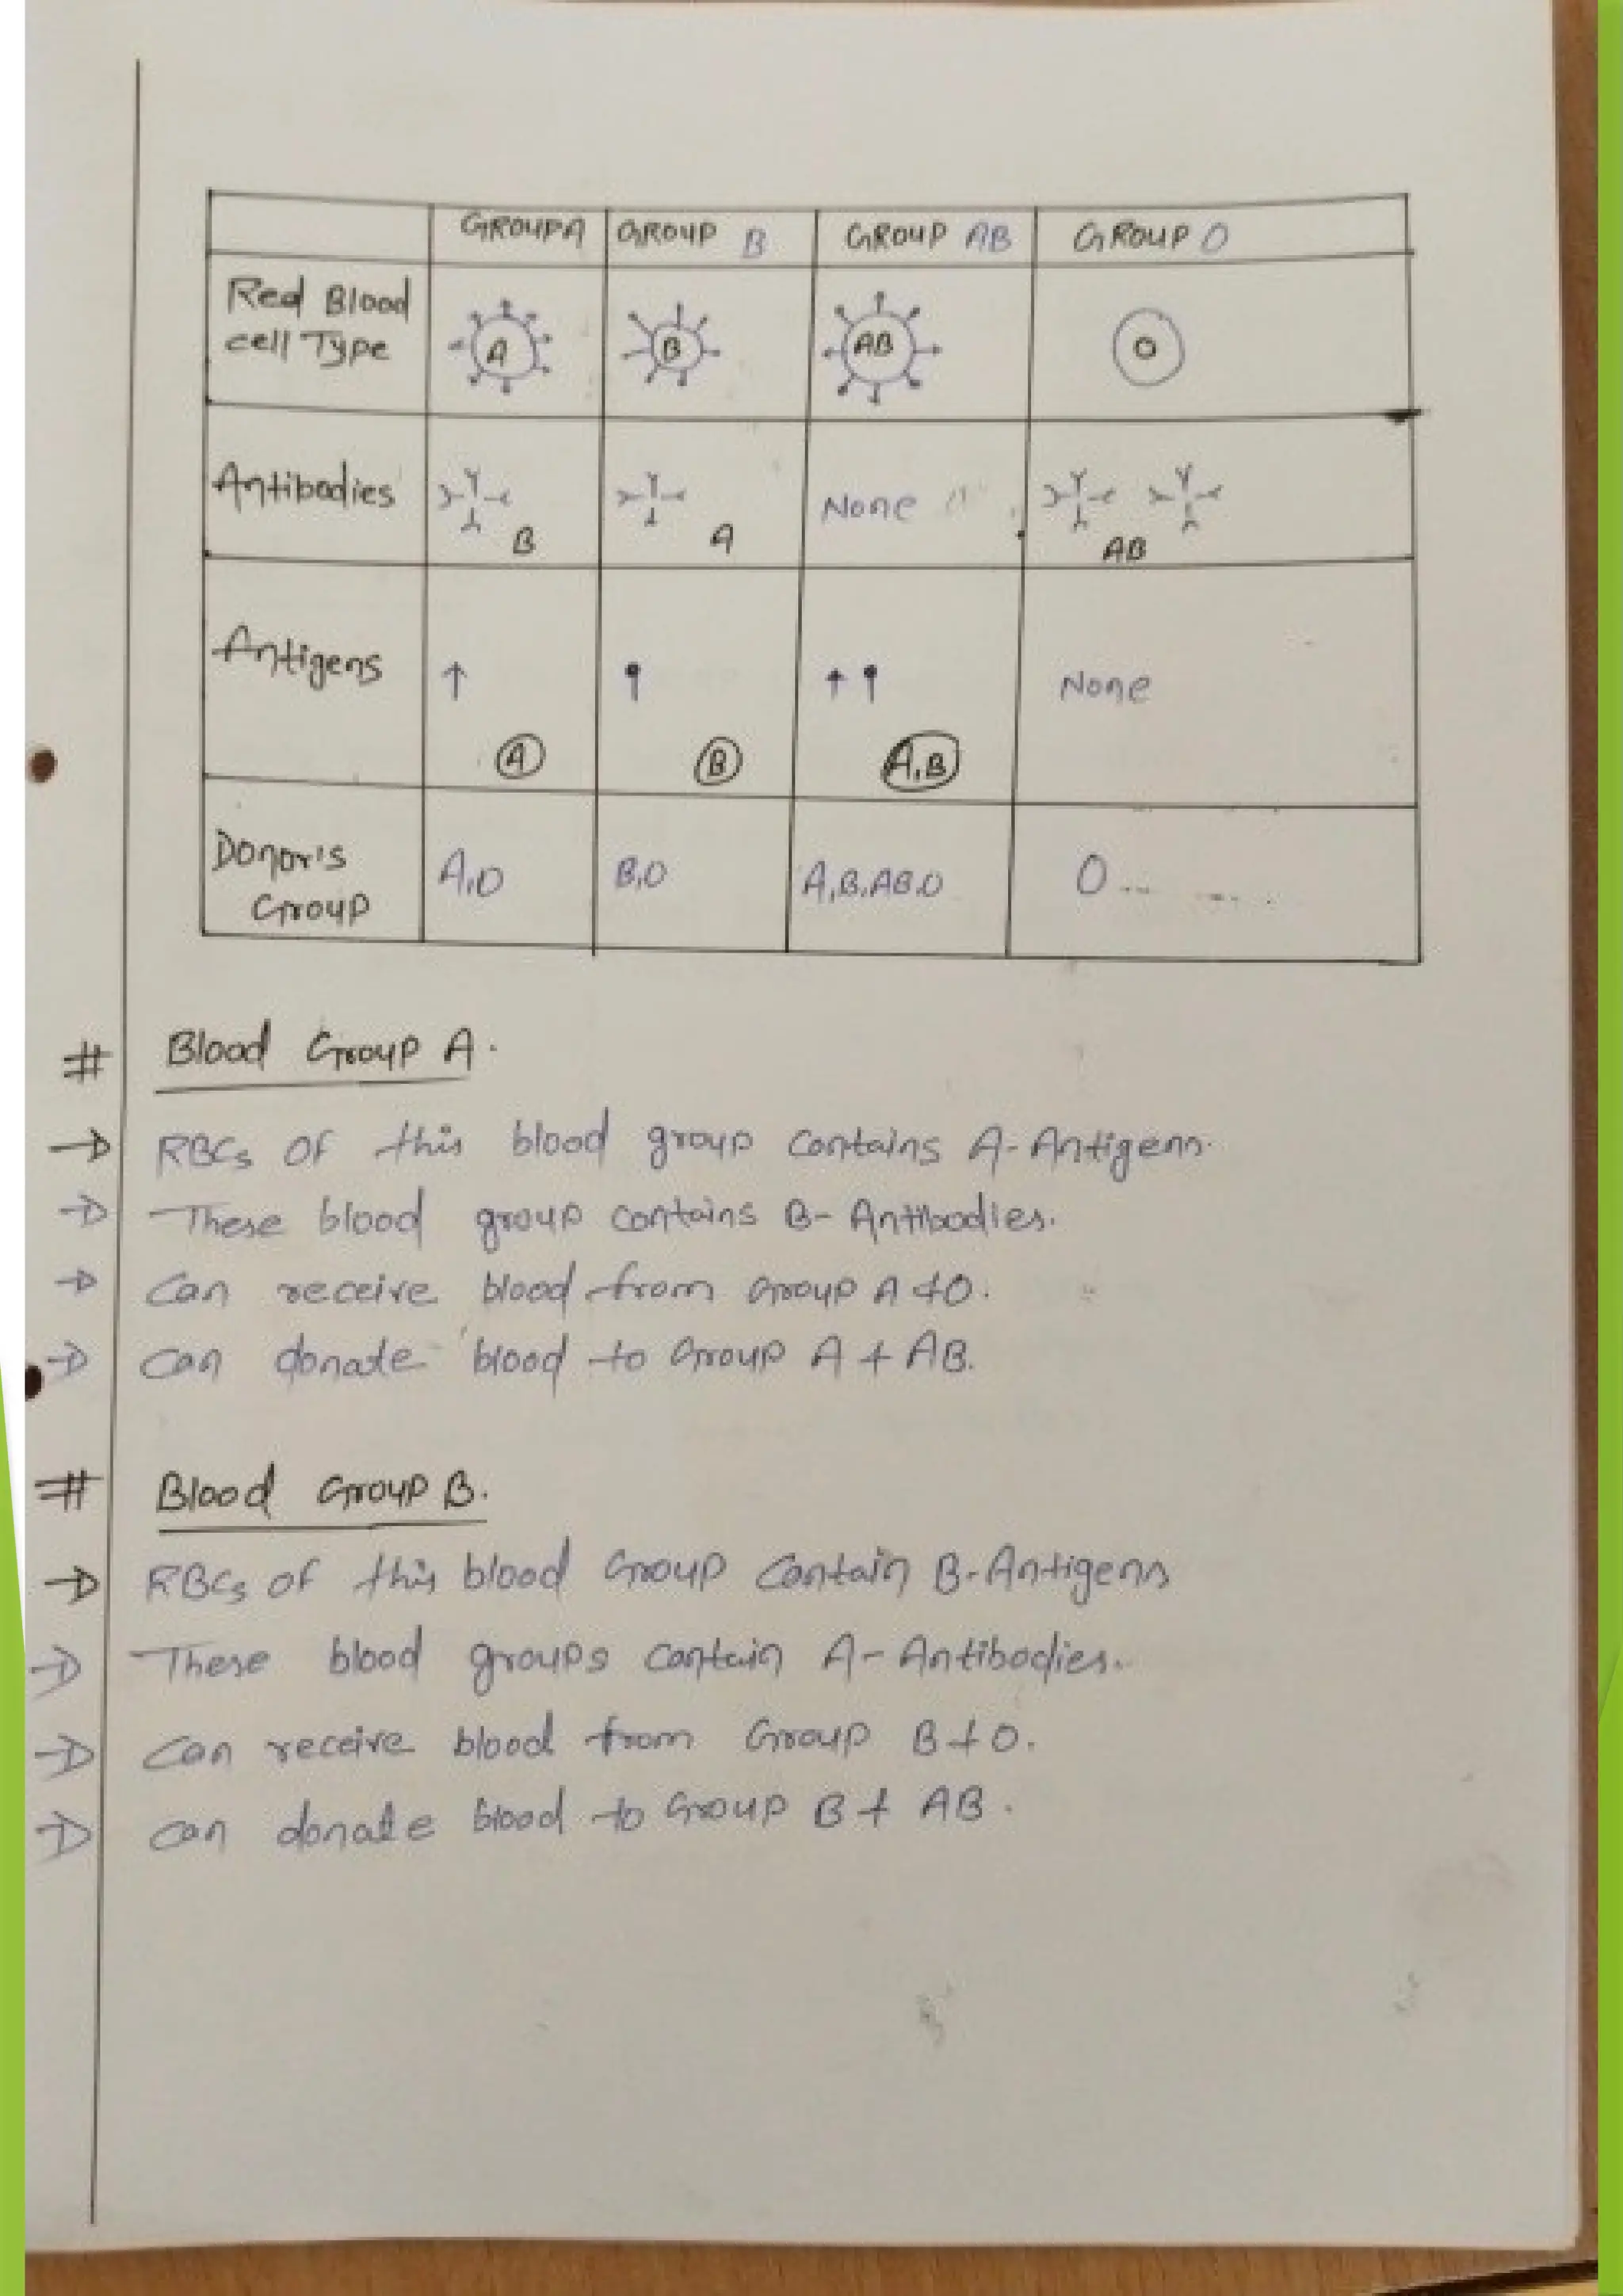 GROUP A GROUP B GROUP AB GROUP O
Red Blood
cell Type A B AB O
Antibodies B A None AB
Antigens A B A,B None
Donor's
Group A,O B,O A,B,AB,O O
# Blood Group A.
→ RBCs of this blood group contains A-Antigens.
→ These blood group contains B-Antibodies.
→ Can receive blood from Group A + O.
→ Can donate blood to Group A + AB.
# Blood Group B.
→ RBCs of this blood Group contain B-Antigens
→ These blood groups contain A-Antibodies.
→ Can receive blood from Group B + O.
→ can donate blood to Group B + AB.